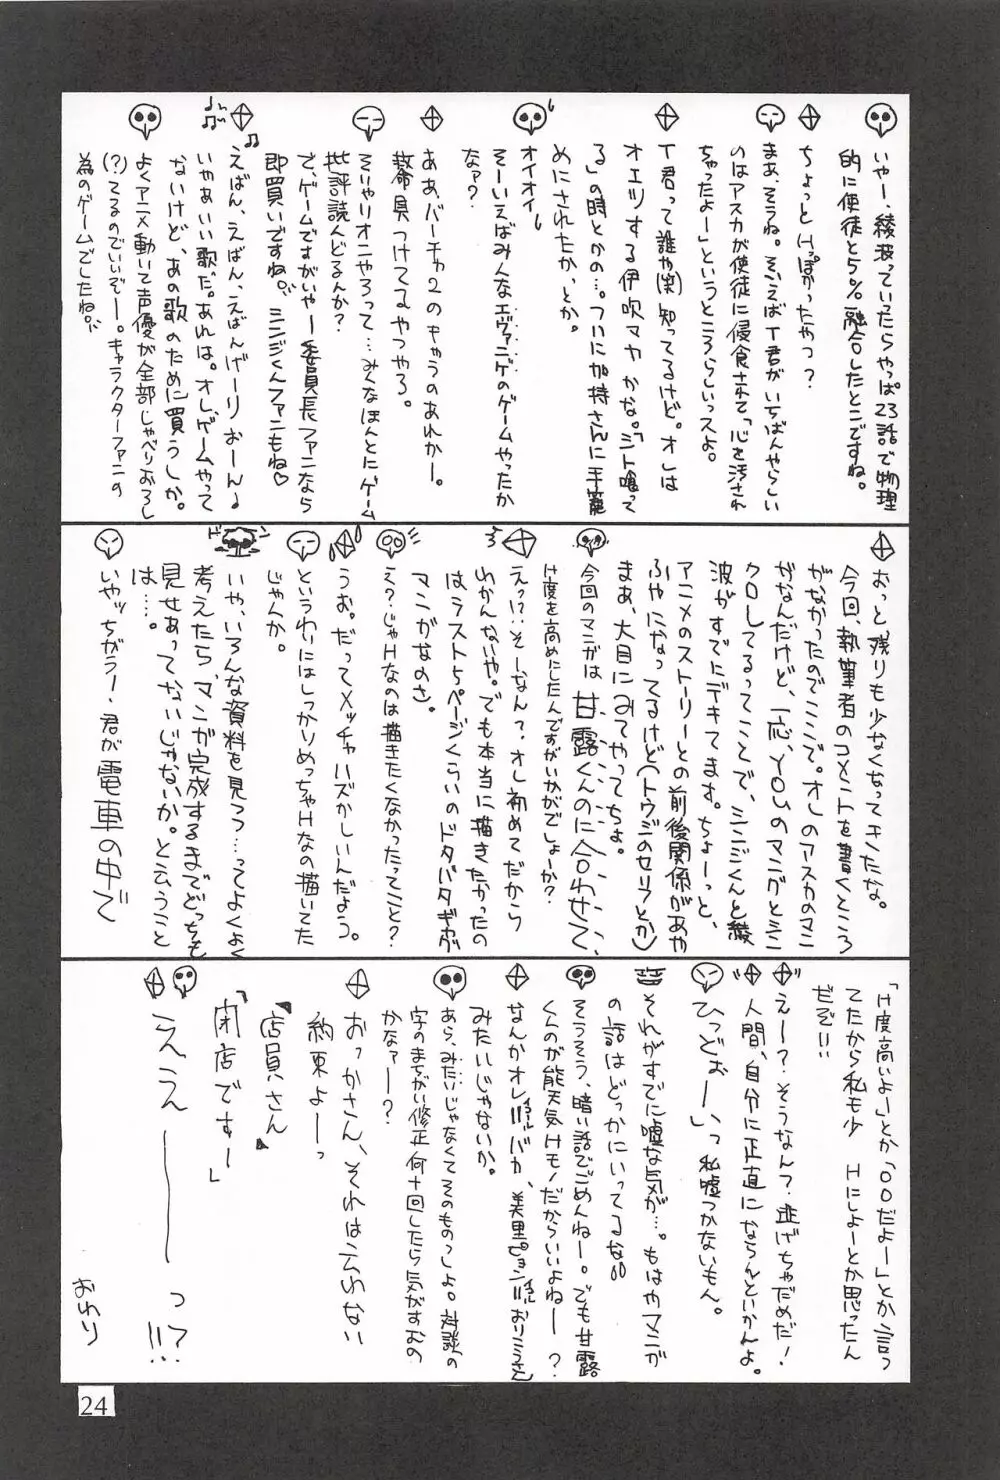 いやー、綾波っていったらやっぱ23話で物理
的に使徒と5%融合したとこですね。
ちょっとHっぽかったやつ?
まあ、そうね。そーいえばT君がいちばんやらしい
のはアスカが使徒に侵食されて「心を汚され
ちゃったよー」というところらしいっスよ。
T君って誰や(笑)知ってるけど。オレは
オエツする伊吹マヤかな。「シト喰って
る」の時とかの…。ついに加持さんに手篭
めにされたか、とか。
オイオイ
そーいえばみんなエヴァンゲのゲームやったか
なァ?
ああ、バーチャ2のキャラのあれかー。
装着具つけてるやつやろ。
そりゃリオンやろって…みんなほんとにゲーム
批評読んどるんか?
で、ゲームですがいやー委員長ファンなら
即買いですね。シンジくんファンもね♡
えばん、えばん、えばんげーりおーん♪
いやぁいい歌だ。あれは。オレ、ゲームやって
ないけど、あの歌のために買うしか。
よくアニメ動いて声優が全部しゃべりおろし
(?)てるのでいいぞー。キャラクターファンの
為のゲームでしたね。
おっと残りも少なくなってキたな。
今回、執筆者のコメントを書くところ
がなかったのでここで。オレのアスカのマン
ガなんだけど、一応、YOUのマンガとシン
クロしてるってことで、シンジくんと綾
波がすでにデキてます。ちょーっと、
アニメのストーリーとの前後関係があや
ふやになってるけど(トウジのセリフとか)
まあ、大目にみてやってちょ。
今回のマンガは甘露くんのに合わせて
H度を高めにしたんですがいかがでしょーか?
えっ!?そーなん?オレ初めてだから
わかんないや。でも本当に描きたかったの
はラスト5ページくらいのドタバタギャグ
マンガなのさ。
え?じゃHなのは描きたくなかったってこと?
うお。だってメッチャハズかしいんだよう。
というわりにはしっかりめっちゃHなの描いてた
じゃんか。
いや、いろんな資料を見つ…ってよくよく
考えたら、マンガ完成するまでどっちも
見せあってないじゃないか。と云うこと
は…。
いやッちがうー、君が電車の中で
「H度高いよー」とか「○○だよー」とか言っ
てたから私も少しHにしよーとか思ったん
だぞ!!
えー?そうなん?逃げちゃだめだ!
人間、自分に正直にならんといかんよ。
ひっどぉーいっ私嘘つかないもん。
それがすでに嘘な気が…。もはやマンガ
の話はどっかにいってるな
そうそう、暗い話でごめんねー。でも甘露
くんのが能天気Hモノだからいいよねー?
なんかオレ=バカ、美里ぴょん=おりこうさん
みたいじゃないか。
あら、みたいじゃなくてそのものっしょ。対談の
字のまちがい修正、何十回したら気がすむの
かなァー?
おっかさん、それは云わない
約束よーっ
店員さん
「閉店ですー」
ええーーーっ!?!!
おわり
24